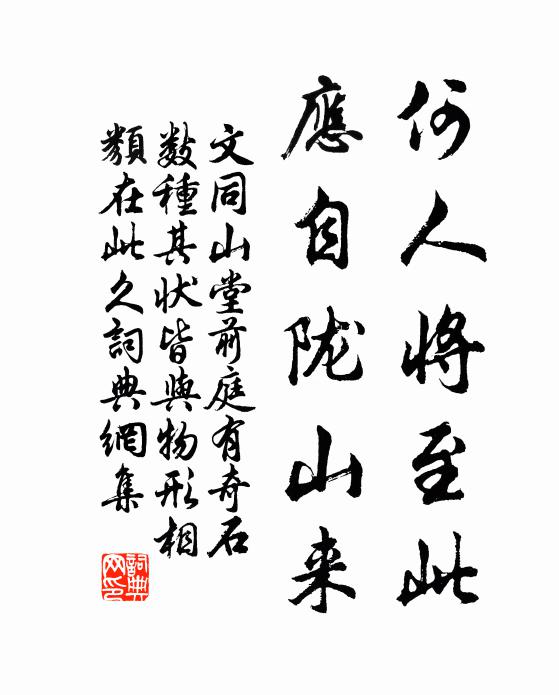 何人将至此
應自陇山来
文同山堂前庭有奇石
数種其状皆與物形相
類在此久詞典網集
詞典网印